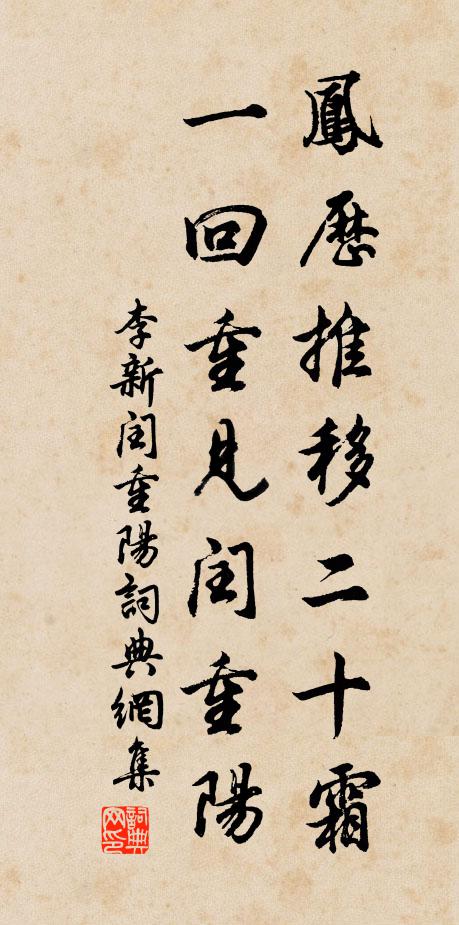 鳳歷推移二十霜
一回重見閏重陽
李新閏重陽詞典網集
詞典网印